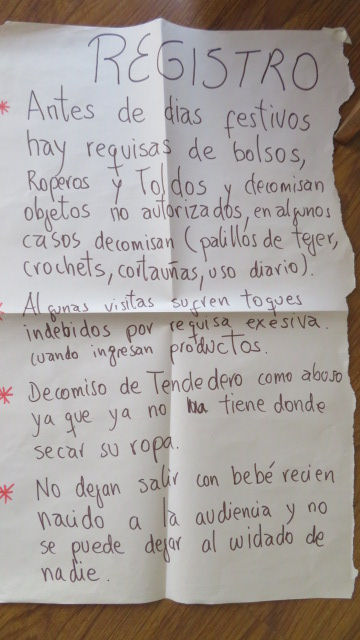 REGISTRO
* Antes de dias festivos
hay requisas de bolsos,
Roperos y Toldos y decomisan
objetos no autorizados, en algunos
casos decomisan (palillos de tejer,
crochets, cortauñas, uso diario).
* Algunas visitas sufren toques
indebidos por requisa exesiva.
cuando ingresan productos.
* Decomiso de Tendedero como abuso
ya que ya no tiene donde
secar su ropa.
* No dejan salir con bebé recien
nacido a la audiencia y no
se puede dejar al cuidado de
nadie.